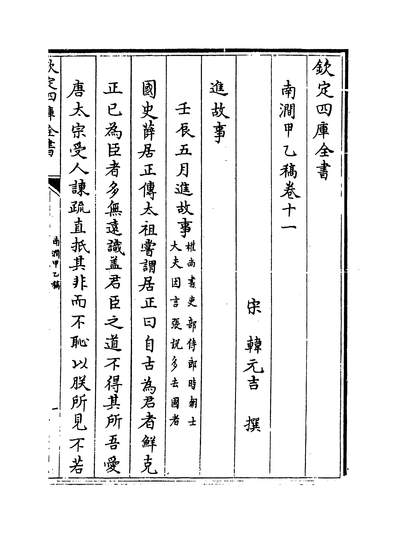 欽定四庫全書
南澗甲乙稿卷十一
宋 韓元吉 撰
進故事
壬辰五月進故事權尚書吏部侍郎時朝士
大夫因言張說多去國者
國史薛居正傳太祖嘗謂居正曰自古為君者鮮克
正已為臣者多無遠識蓋君臣之道不得其所吾愛
唐太宗受人諫疏直抵其非而不恥以朕所見不若
欽定四庫全書
南澗甲乙稿
一